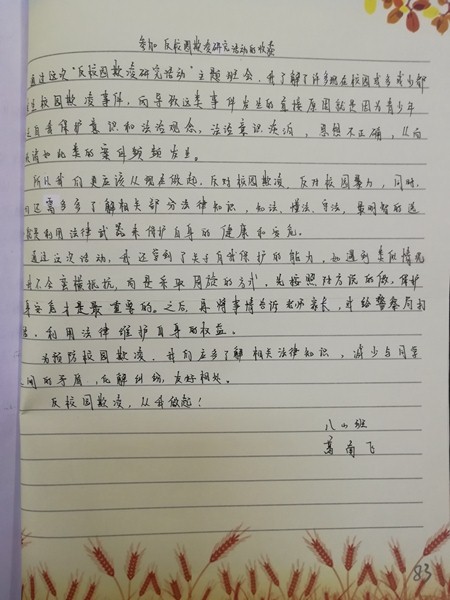 参加反校园欺凌研究活动的收获
通过这次“反校园欺凌研究活动”主题班会，我了解了许多现在校园或多或少都
校园欺凌事件，而导致这类事件发生的直接原因就是因为青少年
自我保护意识和法治观念，法治意识淡泊，思想不正确，从而
诸如此类的案件频频发生。
所以我们更应该从现在做起，反对校园欺凌，反对校园暴力，同时，
还需多多了解相关部分法律知识，知法，懂法，守法，最明智的选
就是利用法律武器来保护自身的健康和安危。
通过这次活动，我还学到了关于自我保护的能力，如遇到类似情况
我不会蛮横抵抗，而是采取周旋的方式，先按照对方说的做，保护
身安危才是最重要的。之后，再将事情告诉老师家长，并给警察局打
，利用法律维护自身的权益。
为预防校园欺凌，我们应多了解相关法律知识，减少与同学
间的矛盾，化解纠纷，友好相处。
反校园欺凌，从我做起！
班
飞
83